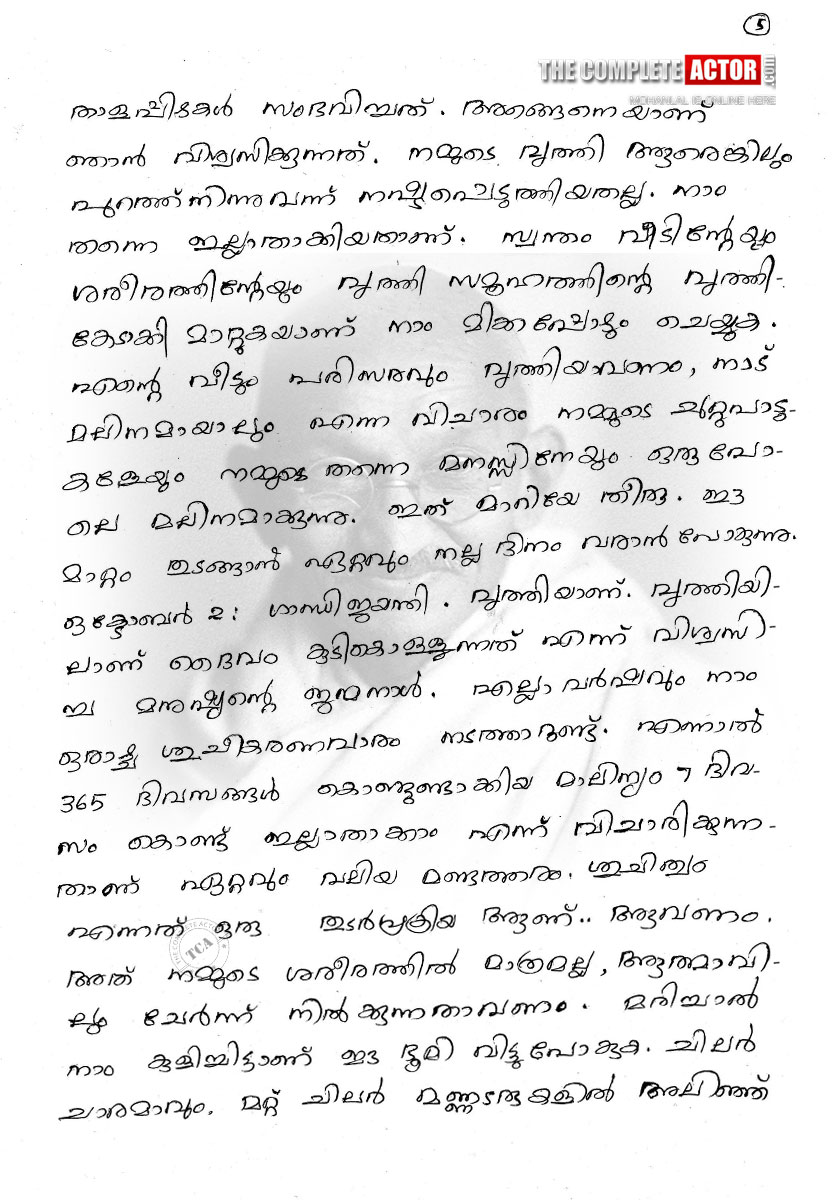 5
THE COMPLETE ACTOR .COM
MOHANLAL IS ONLINE HERE
താളപ്പിഴകൾ സംഭവിച്ചത്. അങ്ങെനെയാണ്
ഞാൻ വിശ്വസിക്കുന്നത്. നമ്മുടെ വൃത്തി ആരെങ്കിലും
പുറത്ത് നിന്നു വന്ന് നഷ്ടപ്പെടുത്തിയതല്ല. നാം
തന്നെ ഇല്ലാതാക്കിയതാണ്. സ്വന്തം വീടിന്റേയും
ശരീരത്തിന്റേയും വൃത്തി സമൂഹത്തിന്റെ വൃത്തി-
കേടാക്കി മാറ്റുകയാണ് നാം മിക്കപ്പോഴും ചെയ്യുക.
എന്റെ വീടും പരിസരവും വൃത്തിയാവണം, നാട്
മലിനമായാലും എന്ന വിചാരം നമ്മുടെ ചുറ്റുപാടു-
കളേയും നമ്മുടെ തന്നെ മനസ്സിനേയും ഒരു പോ-
ലെ മലിനമാക്കുന്നു. ഇത് മാറിയേ തീരൂ. ഈ
മാറ്റം തുടങ്ങാൻ ഏറ്റവും നല്ല ദിനം വരാൻ പോകുന്നു.
ഒക്ടോബർ 2: ഗാന്ധിജയന്തി. വൃത്തിയാണ്. വൃത്തിയി-
ലാണ് ദൈവം കുടികൊള്ളുന്നത് എന്ന് വിശ്വസി-
ച്ച മനുഷ്യന്റെ ജന്മനാൾ. എല്ലാ വർഷവും നാം
ഒരാഴ്ച്ച ശുചീകരണവാരം നടത്താറുണ്ട്. എന്നാൽ
365 ദിവസങ്ങൾ കൊണ്ടുണ്ടാക്കിയ മാലിന്യം 7 ദിവ-
സം കൊണ്ട് ഇല്ലാതാക്കാം എന്ന് വിചാരിക്കുന്ന-
താണ് ഏറ്റവും വലിയ മണ്ടത്തരം. ശുചിത്വം
എന്നത് ഒരു തുടർപ്രക്രിയ ആണ്.. ആവണം.
അത് നമ്മുടെ ശരീരത്തിൽ മാത്രമല്ല, ആത്മാവി-
ലും ചേർന്ന് നിൽക്കുന്നതാവണം. മരിച്ചാൽ
നാം കുളിച്ചിട്ടാണ് ഈ ഭൂമി വിട്ടുപോകുക. ചിലർ
ചാരമാവും. മറ്റ് ചിലർ മണ്ണടരുകളിൽ അലിഞ്ഞ്
TCA